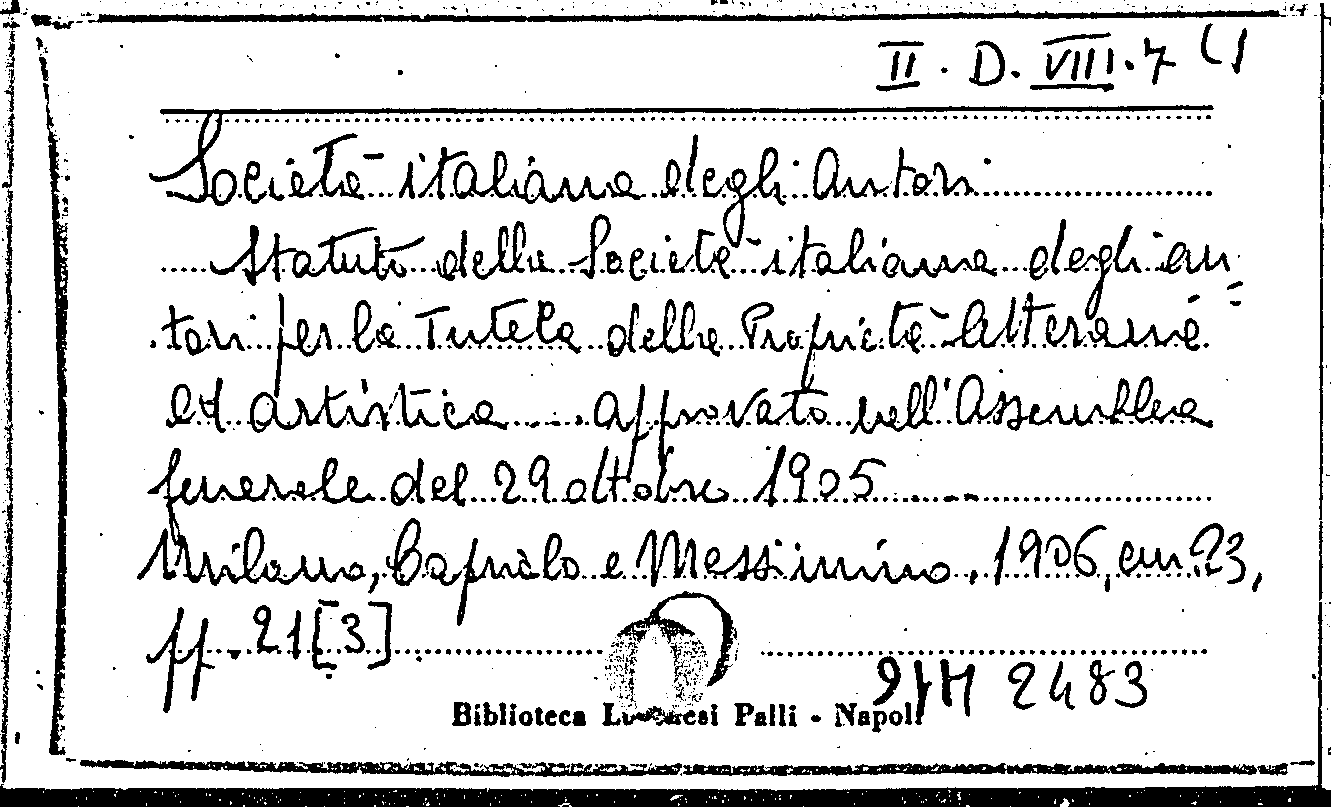 II. D. VIII. 7 (1
Società italiana degli Autori
Statuto della Società italiana degli au=
tori per la Tutela della Proprietà letteraria
ed artistica .... approvato nell'Assemblea
generale del 29 ottobre 1905 ....
Milano, Capriolo e Massimino, 1906, cm. 23,
pp. 21 [3]
2483
Biblioteca Lucchesi Palli - Napoli